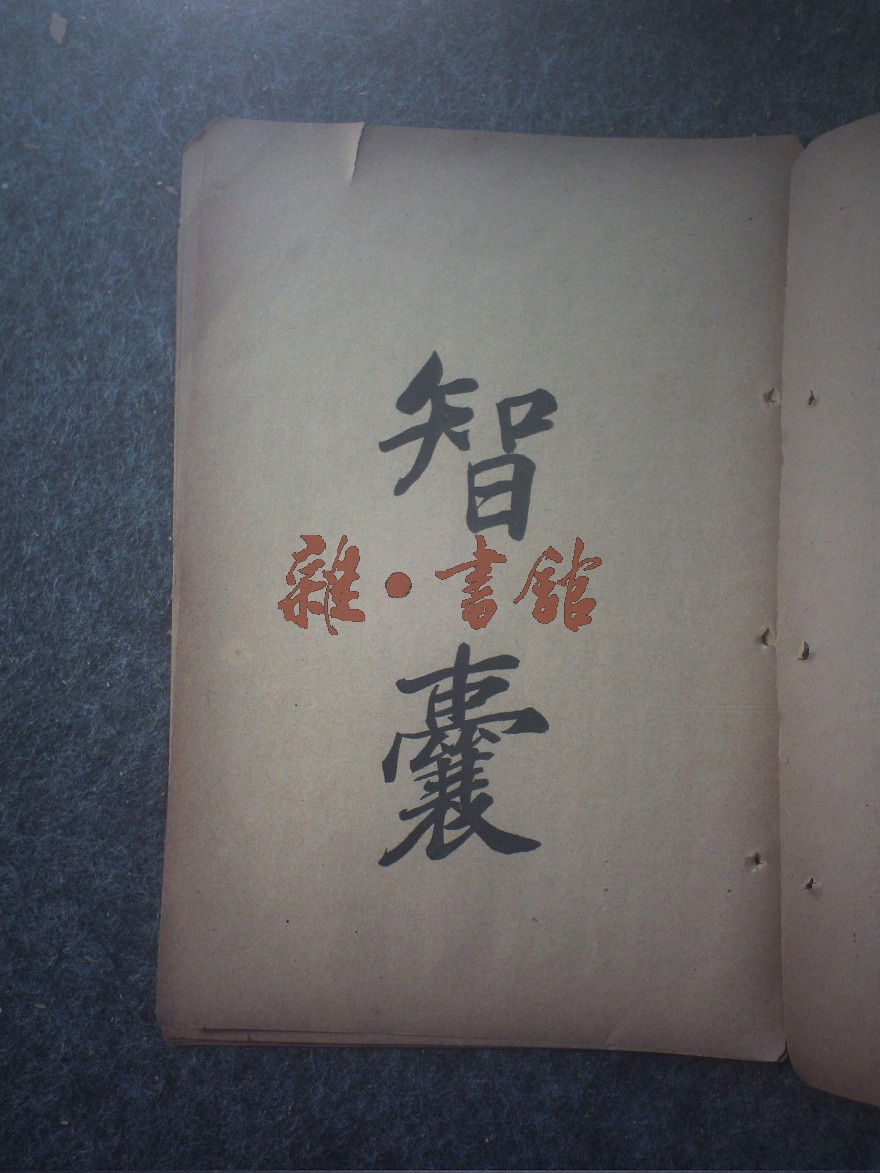 智囊
雜·書館